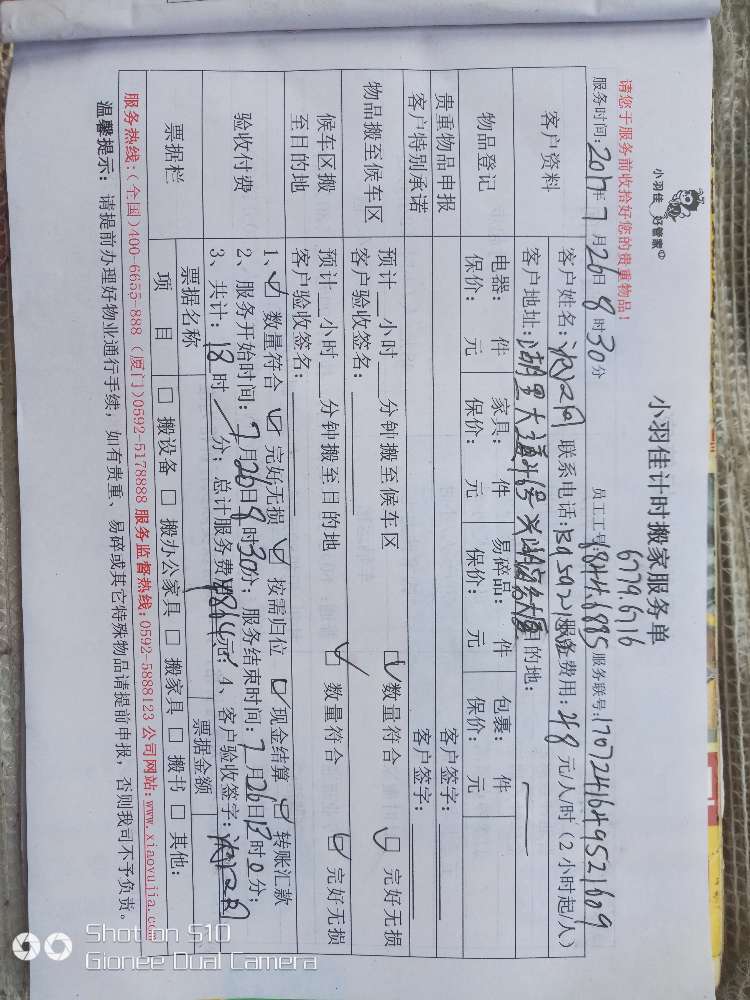 小羽佳 好管家
小羽佳计时搬家服务单
请您于服务前收拾好您的贵重物品！
6779.6716
服务时间：2017年7月26日8时30分 员工工号：6844.6885 服务联号：1707241649521609
客户资料
客户姓名： 联系电话： 服务费用：48元/人/时（2小时起/人）
客户地址：湖里大道 目的地：
物品登记
电器： 件 家具： 件 易碎品： 件 包裹： 件
保价： 元 保价： 元 保价： 元 保价： 元
贵重物品申报 客户签字：
客户特别承诺 客户签字：
物品搬至候车区
预计__小时__分钟搬至候车区 数量符合 完好无损
客户验收签名：
候车区搬至目的地
预计__小时__分钟搬至目的地 数量符合 完好无损
客户验收签名：
验收付费
1、 数量符合 完好无损 按需归位 现金结算 转账汇款
2、服务开始时间：7月26日8时30分；服务结束时间：7月26日13时0分；
3、共计：18时 分；总计服务费用：864元；4、客户验收签字：
票据栏
票据名称 票据金额
项目 □ 搬设备 □ 搬办公家具 □ 搬家具 □ 搬书 □ 其他：
服务热线：（全国）400-6655-888（厦门）0592-5178888 服务监督热线：0592-5888123 公司网站：www.xiaoyujia.com
温馨提示：请提前办理好物业通行手续，如有贵重、易碎或其它特殊物品请提前申报，否则我司不予负责。
Shot on S10
Gionee Dual Camera